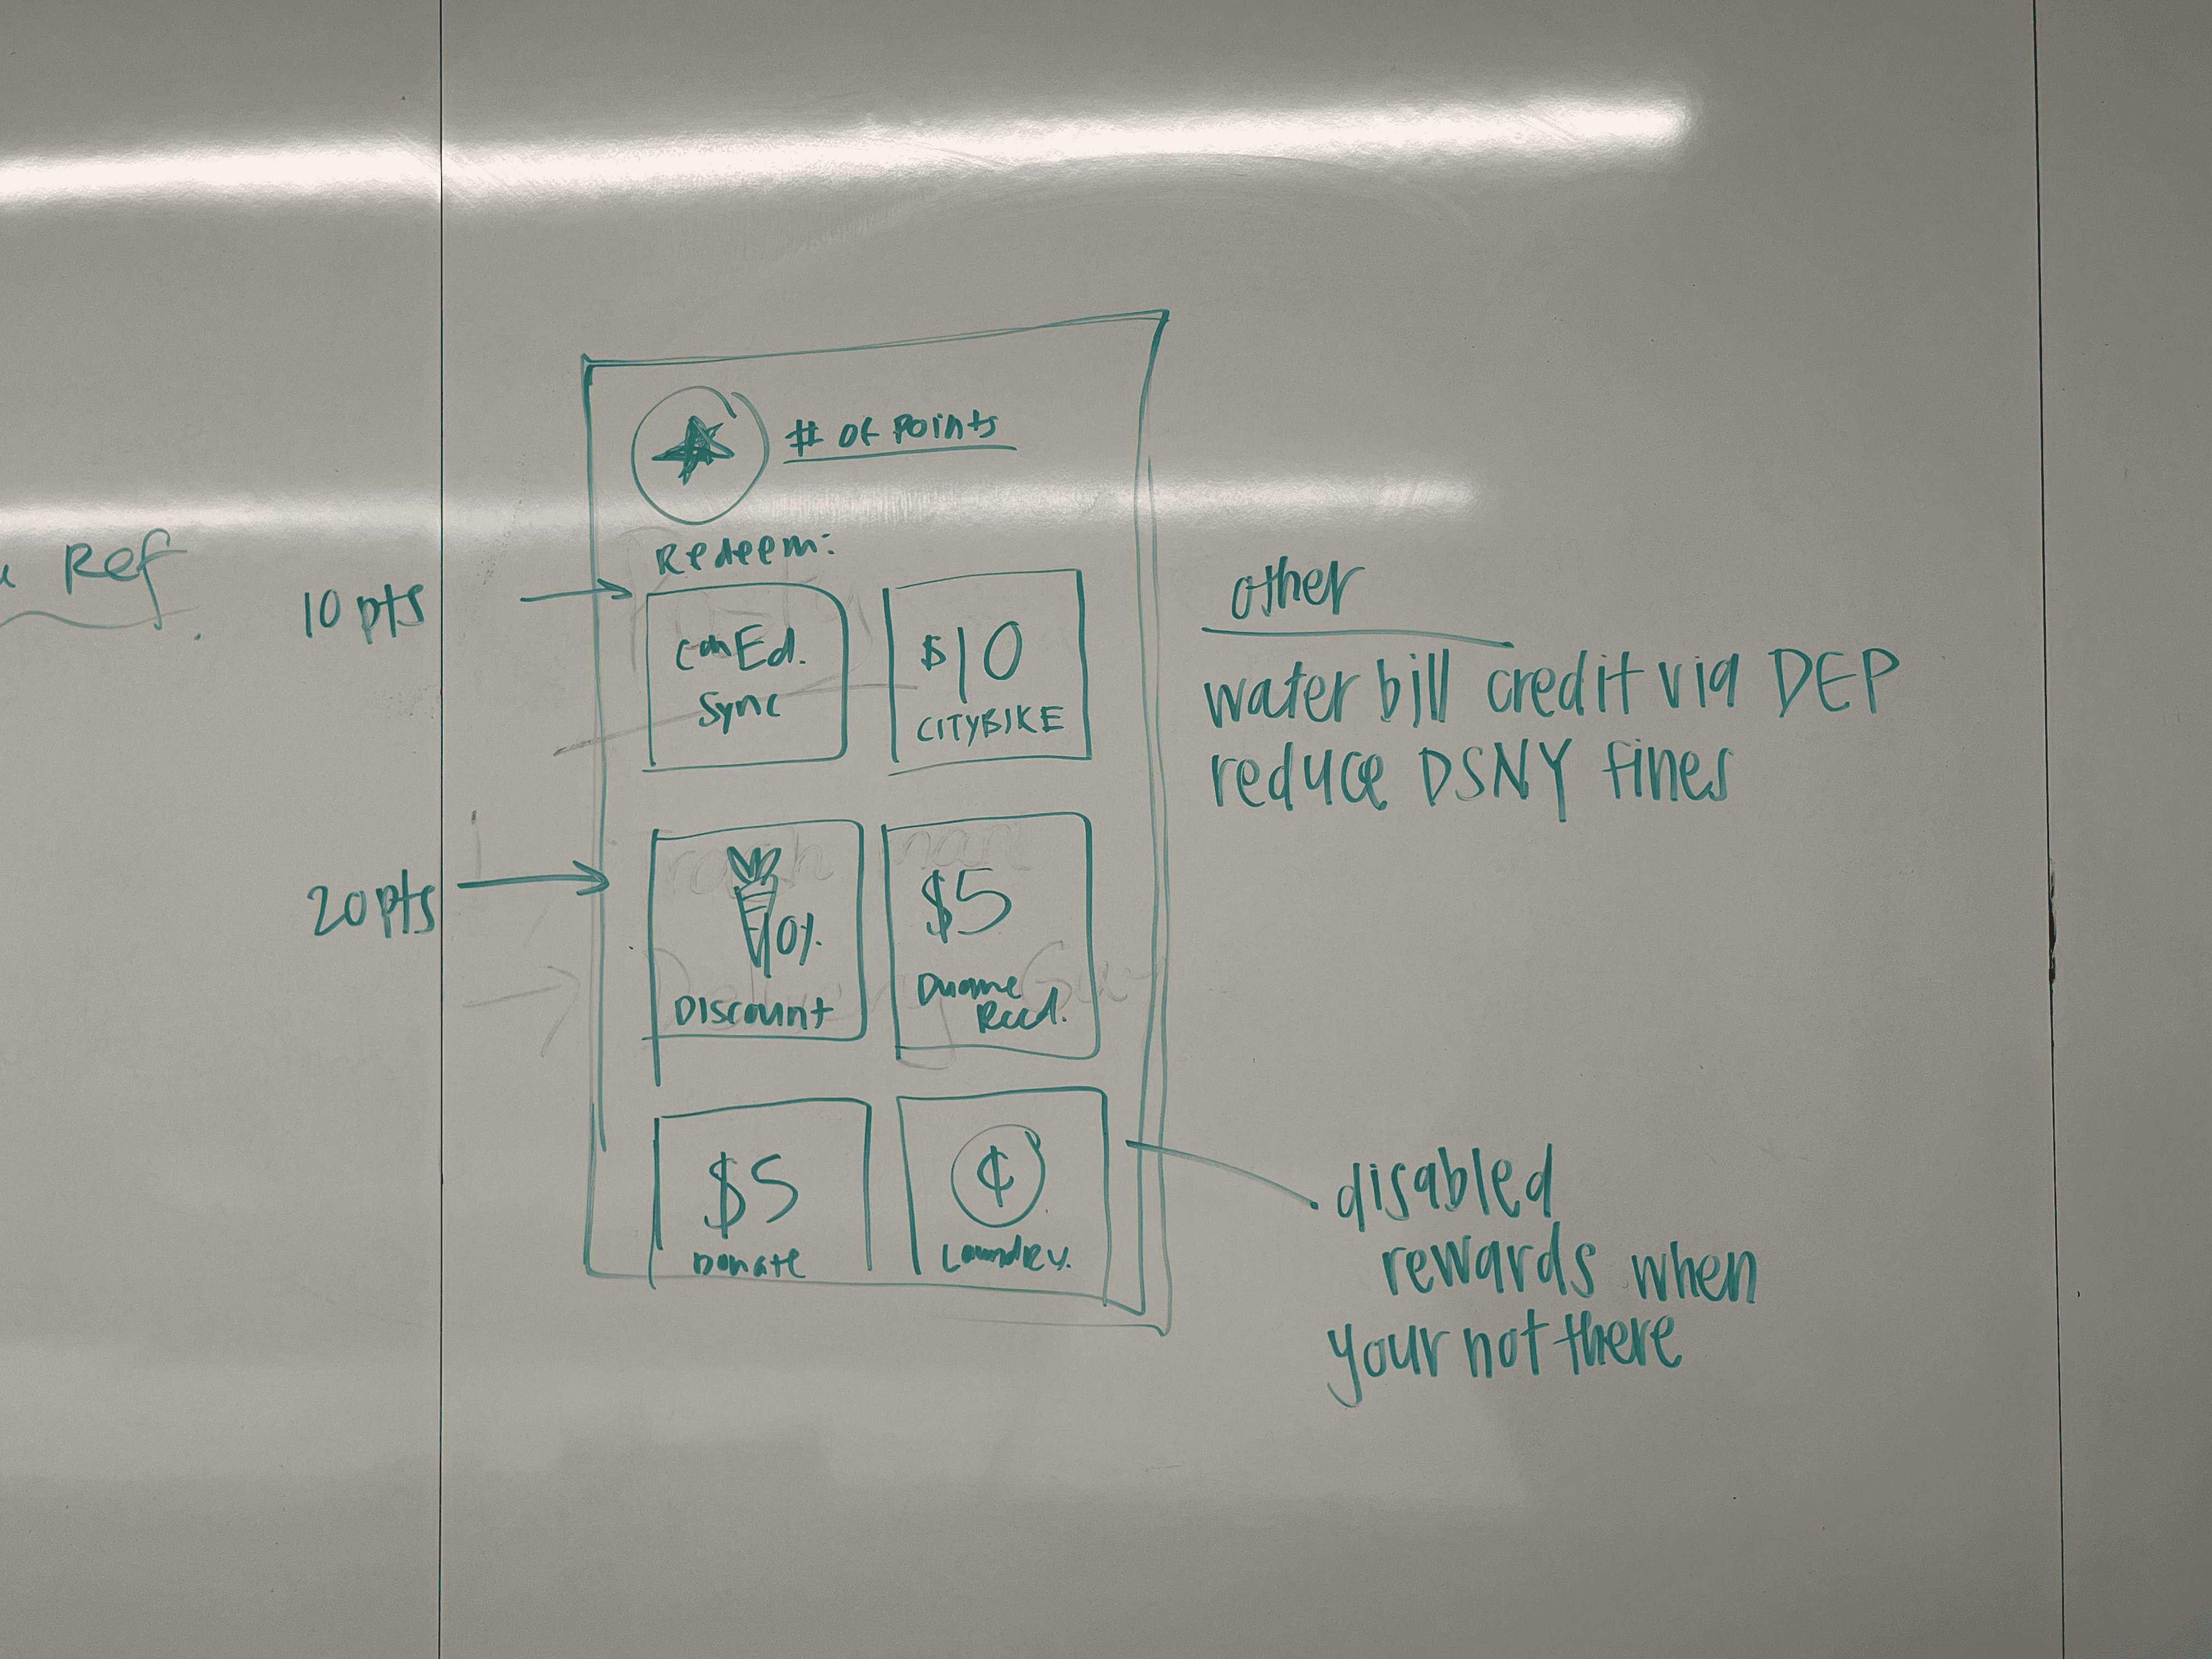 Ref
10 pts
20 pts
# OF POINTS
Redeem:
ConEd.
Sync
$10
CITYBIKE
10%
Discount
$5
Duane
Reed.
$5
Donate
¢
Laundry.
other
water bill credit via DEP
reduce DSNY fines
disabled
rewards when
your not there